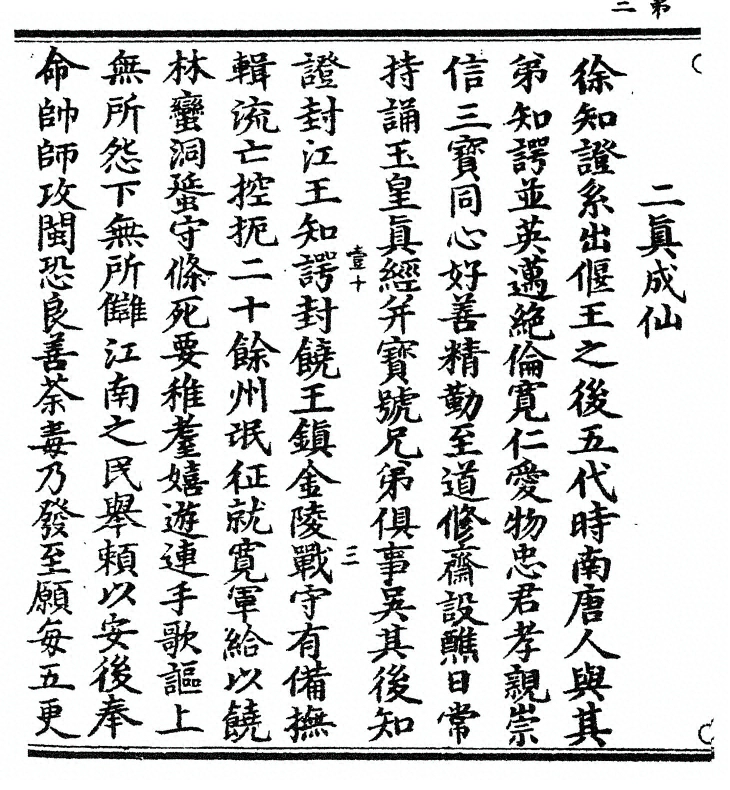 第二
二眞成仙
徐知證系出偃王之後五代時南唐人與其
弟知諤並英邁絶倫寛仁愛物忠君孝親崇
信三寶同心好善精勤至道修齋設醮日常
持誦玉皇眞經并寶號兄弟俱事吳其後知
壹十
三
證封江王知諤封饒王鎮金陵戰守有備撫
輯流亡控扼二十餘州氓征就寛軍給以饒
林蠻洞蜑守條死要稚耋嬉遊連手歌謳上
無所怨下無所讎江南之民舉頼以安後奉
命帥師攻閩恐良善荼毒乃發至願每五更